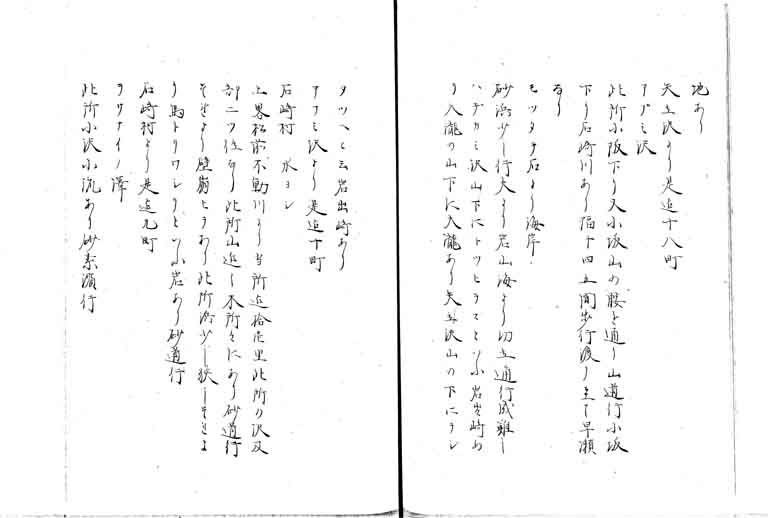 地あり
矢立沢より是迄十八町
アブミ沢
此所小阪下り又小坂山の腰を通り山道行小坂
下り石崎川あり幅十四五間歩行渡り至て早瀬
なり
モツタテ石より海岸
砂浜少し行夫より岩山海より切立通行成難し
ハヂカミ沢山下にトツヒラマミソ小岩出崎あ
り入瀧の山下に入瀧あり矢立沢山の下にテレ
タツヘと云岩出崎あり
アフミ沢より是迄十町
石崎村 水ヨシ
上界松前不動川より当所迄拾壱里此所の沢及
部二ツ位なり此所山近し木所々にあり砂道行
それより壁崩ヒラあり此所浜少し狭しそれよ
り馬トリワレタとソ小岩あり砂道行
石崎村より是迄九町
ヲサナイノ澤
此所小沢小流あり砂素濱行